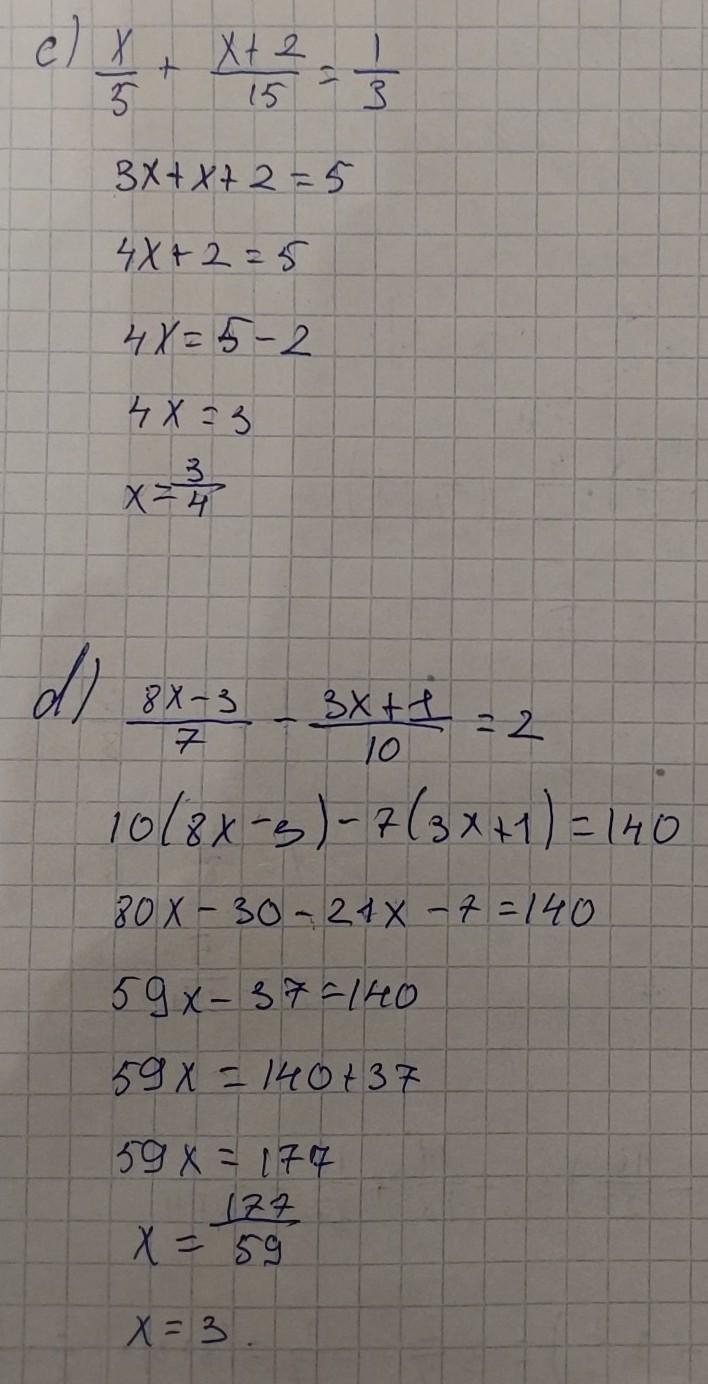 c) x/5 + (x+2)/15 = 1/3
3x+x+2=5
4x+2=5
4x=5-2
4x=3
x=3/4
d) (8x-3)/7 - (3x+1)/10 = 2
10(8x-3)-7(3x+1)=140
80x-30-21x-7=140
59x-37=140
59x=140+37
59x=177
x=177/59
x=3.